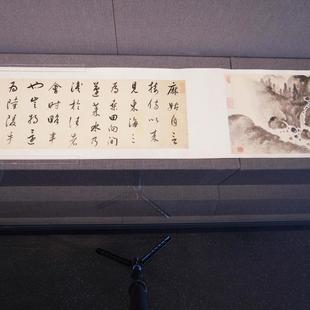 麻姑自言
接侍以來
見東海三
為桑田向間
蓬萊水乃
淺於往者
會時略半
也豈將還
為陸陵乎